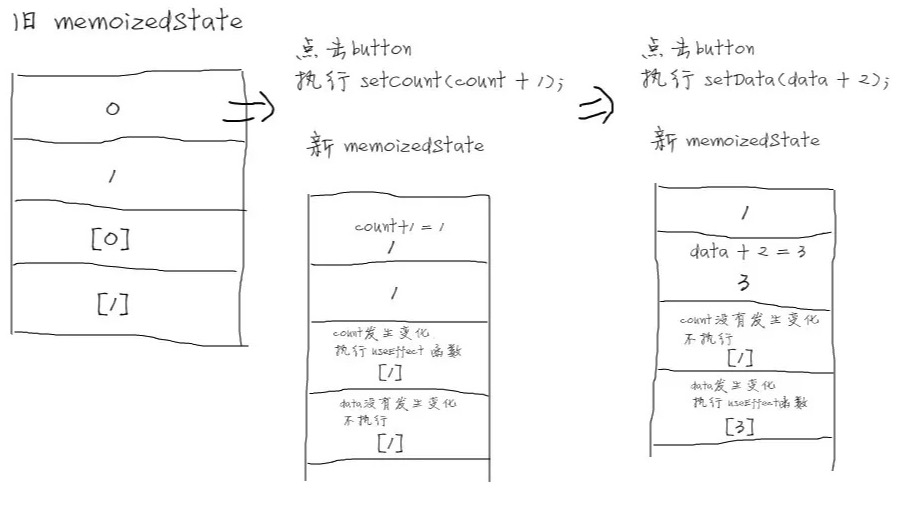 旧 memoizedState
0
1
[0]
[1]
点击button
执行 setCount(count + 1);
新 memoizedState
count+1 = 1
1
1
count发生变化
执行 useEffect 函数
[1]
data没有发生变化
不执行
[1]
点击button
执行 setData(data + 2);
新 memoizedState
1
data + 2 = 3
3
count没有发生变化
不执行
[1]
data发生变化
执行 useEffect函数
[3]